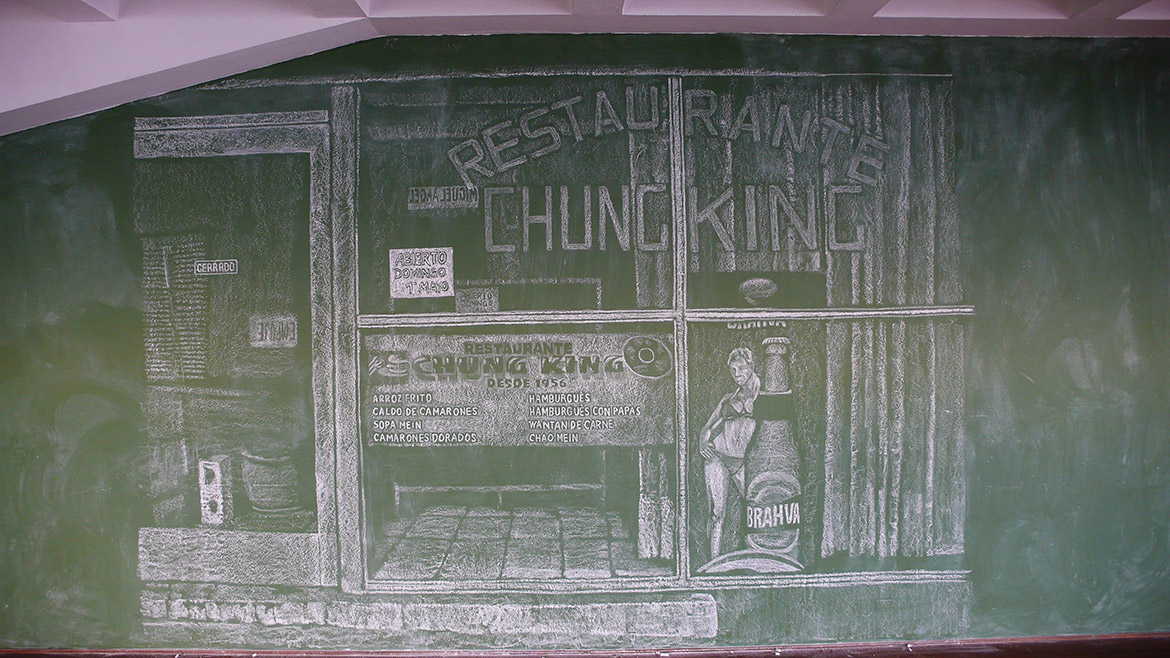 RESTAURANTE
CHUNG KING
MIGUEL ANGEL
CERRADO
ABIERTO
DOMINGO
1 MAYO
RESTAURANTE
CHUNG KING
DESDE 1956
ARROZ FRITO
CALDO DE CAMARONES
SOPA MEIN
CAMARONES DORADOS
HAMBURGUÉS
HAMBURGUÉS CON PAPAS
WANTAN DE CARNE
CHAO MEIN
BRAHVA